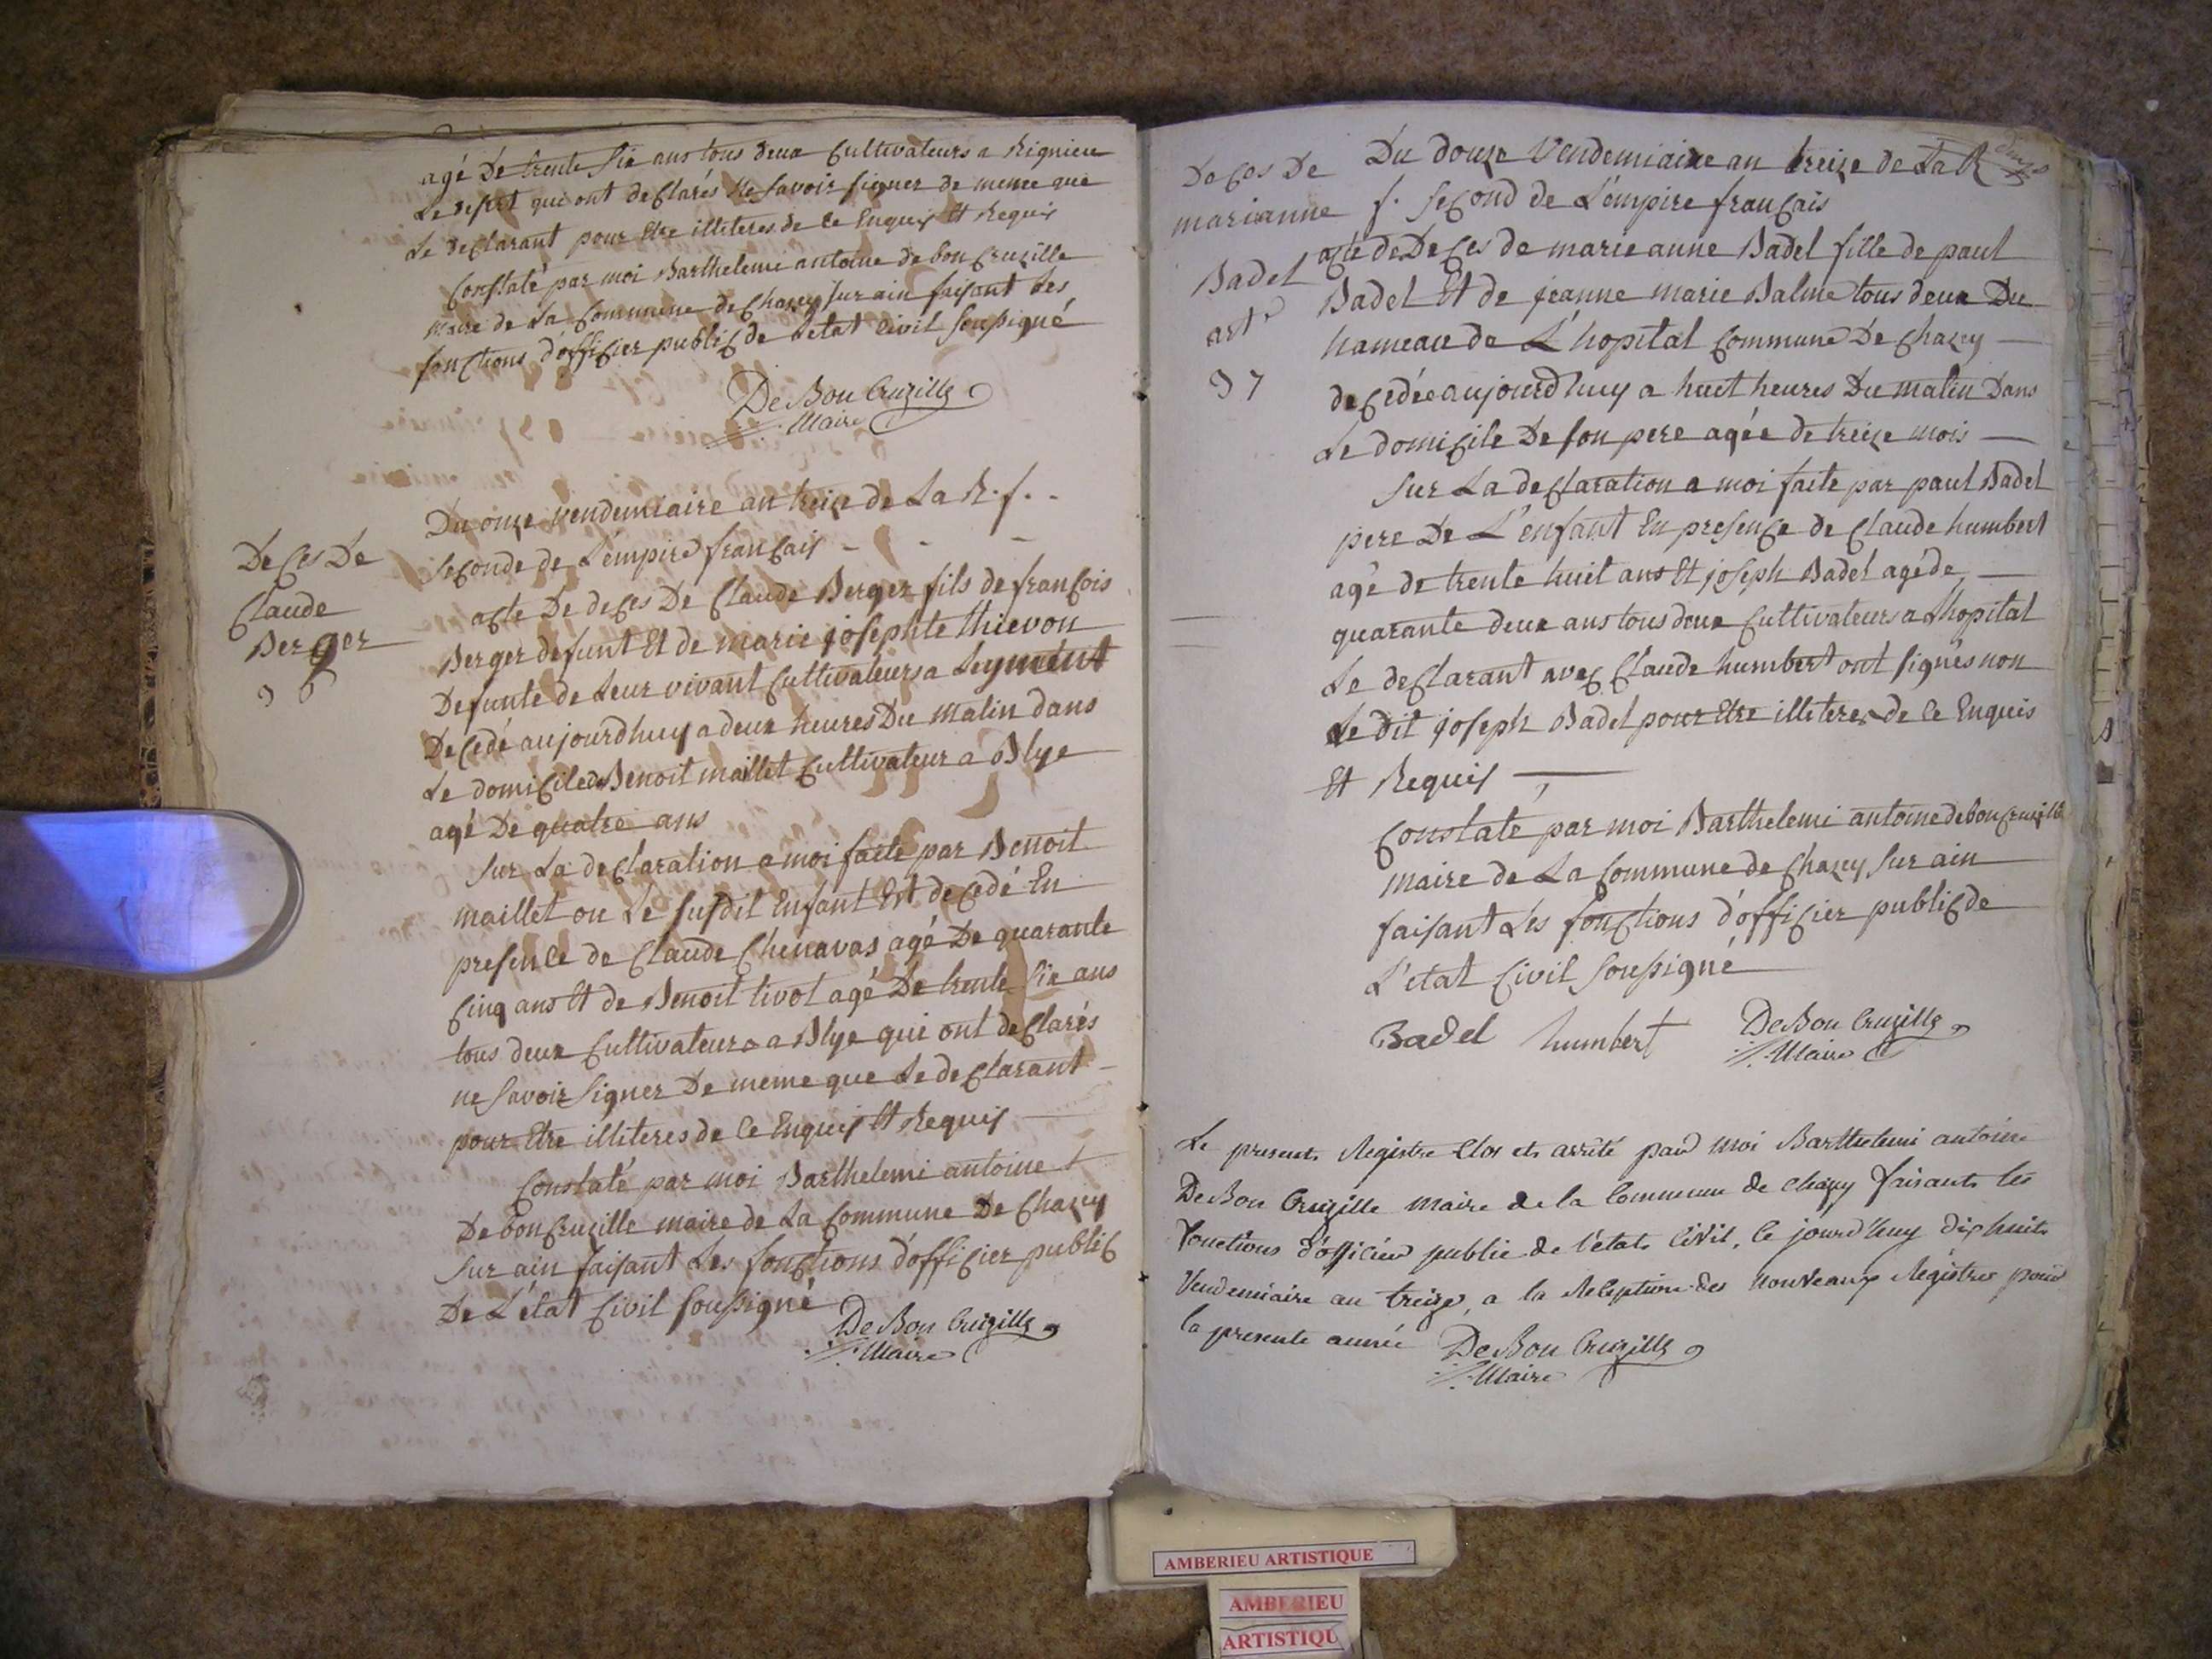 agé De trente Six ans tous deux Cultivateurs a Rigniew
qui ont declarés Ne Savoir signer de meme que
Le declarant pour Etre illiteres de Ce Enquis Et Requis
Constaté par moi Barthelemi antoine de bon Cruzille
maire de La Commune de Chazey sur ain faisant Les
fonctions d'officier public de L'etat Civil soussigné
De Bon Cruzille
Maire
Du onze vendemiaire an treize de La R. f.
Seconde de L'empire français
Deces De
Claude
Berger
96
acte De deces De Claude Berger fils de françois
Berger defunt Et de marie josephte thievon
Defunte de Leur vivant Cultivateurs a Leyment
Decedé aujourdhuy a deux heures Du matin dans
Le domicile de Benoit maillet Cultivateur a Blye
agé De quatre ans
Sur La declaration a moi faite par Benoit
maillet ou Le susdit Enfant Est decedé En
presence de Claude Chenavas agé De quarante
Cinq ans Et de Benoit tivot agé De trente Six ans
tous deux Cultivateurs a Blye qui ont declarés
ne Savoir Signer De meme que Le declarant
pour Etre illiteres de Ce Enquis Et Requis
Constaté par moi Barthelemi antoine
De bon Cruzille maire de La Commune De Chazey
Sur ain faisant Les fonctions d'officier public
De L'état Civil soussigné
De Bon Cruzille
Maire
Deces De
marianne
Badel
art
97
Du douze Vendemiaire an treize de La R
f. second de L'empire français
acte de Deces de marie anne Badel fille de paul
Badel Et de jeanne marie Balme tous deux Du
hameau de L'hopital Commune De Chazey
decedée aujourdhuy a huit heures Du matin Dans
Le domicile De son pere agée de treize mois
Sur La declaration a moi faite par paul Badel
pere De L'enfant En presence de Claude humbert
agé de trente huit ans Et joseph Badel agé de
quarante deux ans tous deux Cultivateurs a Lhopital
Le declarant avec Claude humbert ont signés non
Le dit joseph Badel pour Etre illitere de Ce Enquis
Et Requis
Constaté par moi Barthelemi antoine de bon cruzille
maire de La Commune de Chazey Sur ain
faisant Les fonctions d'officier public de
L'etat Civil soussigné
Badel humbert De Bon Cruzille
Maire
Le present Registre Clos et arrêté par moi Barthelemi antoine
De Bon Cruzille Maire de la Commune de chazey faisant les
fonctions d'officier public de l'état Civil, ce jourd'huy dix huit
Vendemiaire an treize, a la Reception des nouveaux Régistres pour
la presente année
De Bon Cruzille
Maire
AMBERIEU ARTISTIQUE
AMBERIEU
ARTISTIQU